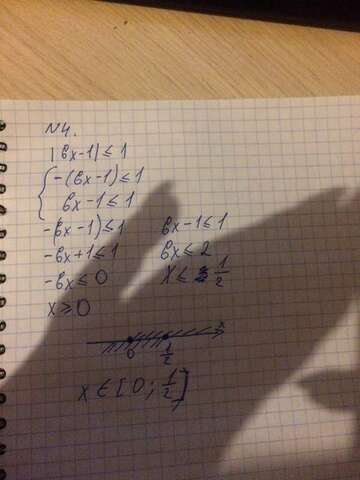 N4.
|6x-1| ≤ 1
{ -(6x-1) ≤ 1
6x-1 ≤ 1
-(6x-1) ≤ 1    6x-1 ≤ 1
-6x+1 ≤ 1    6x ≤ 2
-6x ≤ 0    x ≤ 1/2
x ≥ 0
0    1/2
x ∈ [0; 1/2]